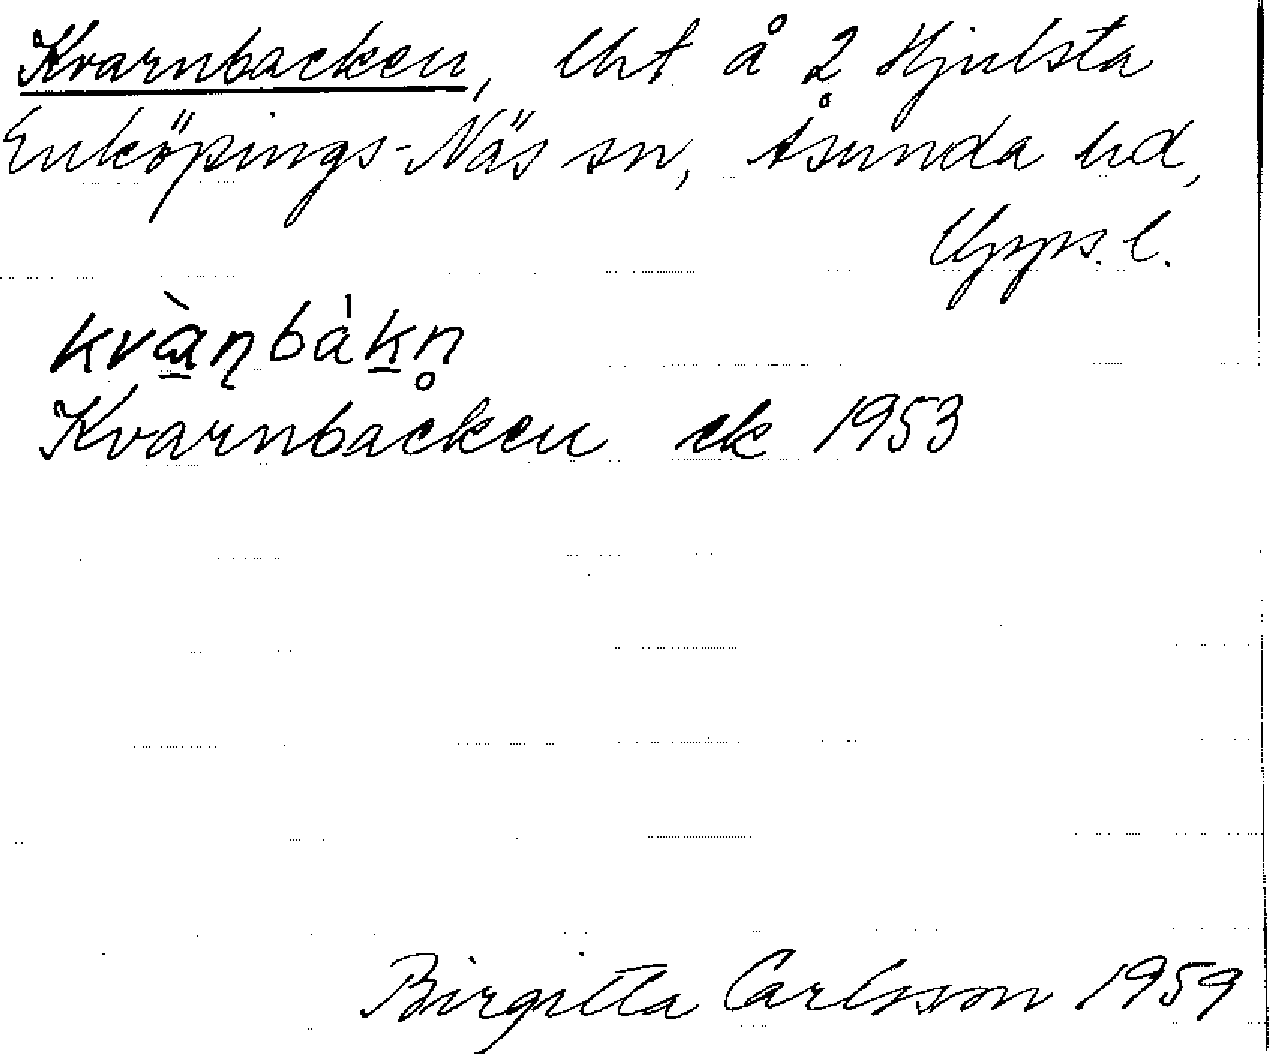 Kvarnbacken, lht å 2 Hjulsta
Enköpings-Näs sn, Åsunda hd,
Upps. l.
kvàɳbákn̥
Kvarnbacken ek 1953
Birgitta Carlsson 1959